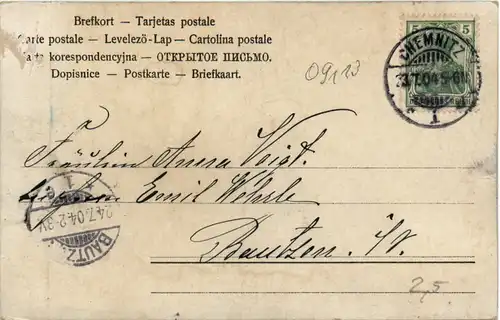 Brefkort — Tarjetas postale
Carte postale — Levelezõ-Lap — Cartolina postale
Karta korespondencyjna — ОТКРЫТОЕ ПИСЬМО.
Dopisnice — Postkarte — Briefkaart.
09,13
5 5
CHEMNITZ
23.7.04.5-6N.
1
Fräulein Anna Voigt.
Emil Wehrle
Bautzen. i/S.
BAUTZ
24.7.04.2-3V
1 c
2,5